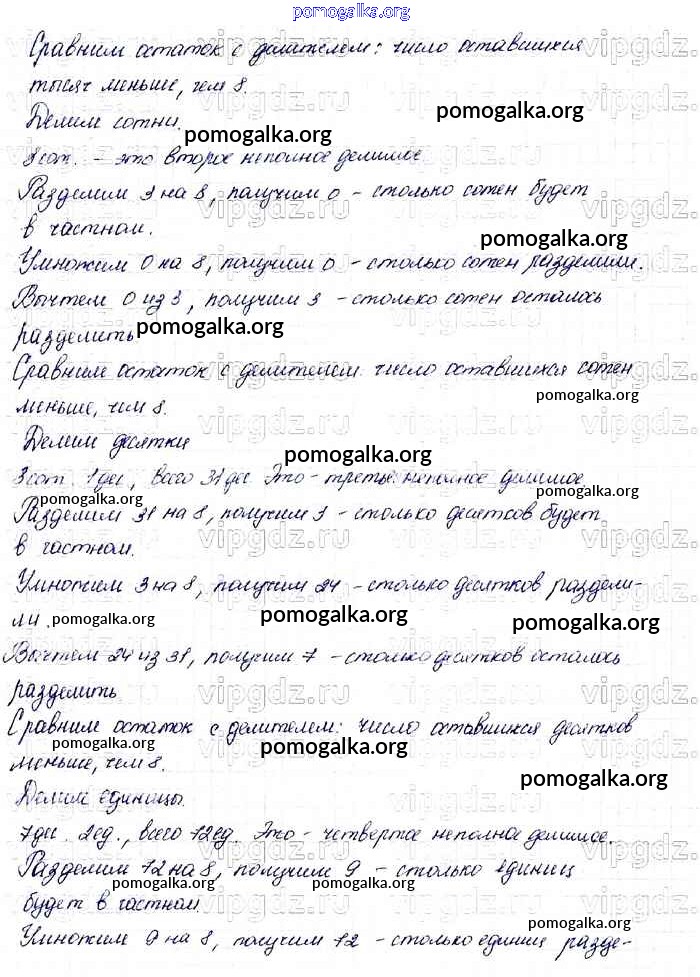 pomogalka.org
Сравним остаток с делителем: число оставшихся
тысяч меньше, чем 8.
Делим сотни.
pomogalka.org
pomogalka.org
3 сот. – это второе неполное делимое.
Разделим 3 на 8, получим 0 – столько сотен будет
pomogalka.org
в частном.
pomogalka.org
Умножим 0 на 8, получим 0 – столько сотен разделили.
Вычтем 0 из 3, получим 3 – столько сотен осталось
разделить
pomogalka.org
Сравним остаток с делителем число оставшихся сотен
pomogalka.org
меньше, чем 8.
Делим десятки
pomogalka.org
3 сот. 1 дес., всего 31 дес. Это – третье неполное делимое.
pomogalka.org
pomogalka.org
Разделим 31 на 8, получим 3 – столько десятков будет
в частном.
Умножим 3 на 8, получим 24 – столько десятков раздели-
ли.
pomogalka.org
pomogalka.org
pomogalka.org
Вычтем 24 из 31, получим 7 – столько десятков осталось
разделить
Сравним остаток с делителем: число оставшихся десятков
pomogalka.org
pomogalka.org
меньше, чем 8.
pomogalka.org
Делим единицы.
7 дес. 2 ед., всего 12 ед. Это – четвертое неполное делимое.
Разделим 72 на 8, получим 9 – столько единиц
pomogalka.org
pomogalka.org
будет в частном.
pomogalka.org
Умножим 9 на 8, получим 72 – столько единиц разде-
vipgdz.ru